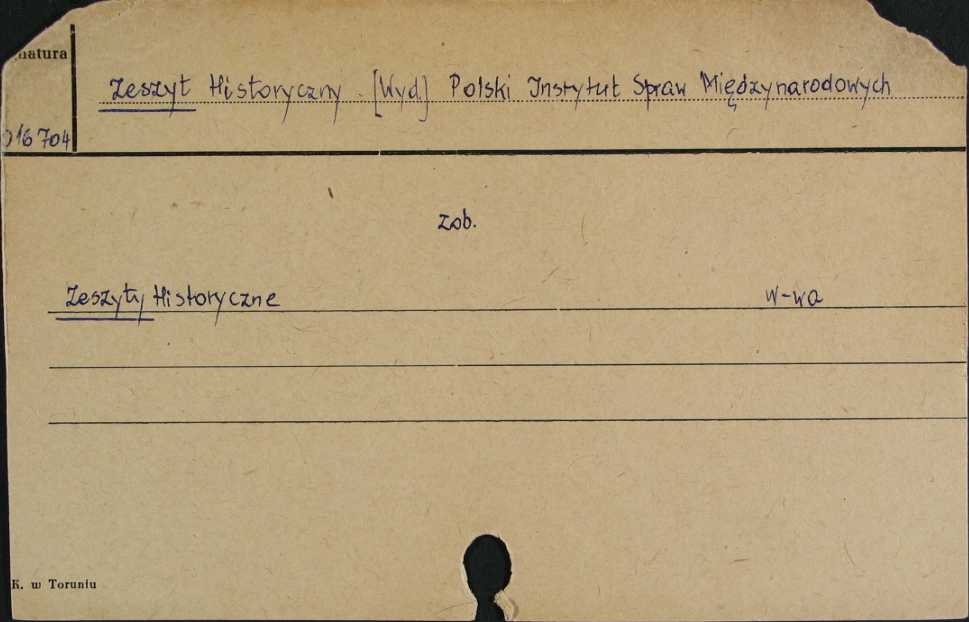 natura
Zeszyt Historyczny. [Wyd.] Polski Instytut Spraw Międzynarodowych
016704
zob.
Zeszyty Historyczne W-wa
K. w Toruniu